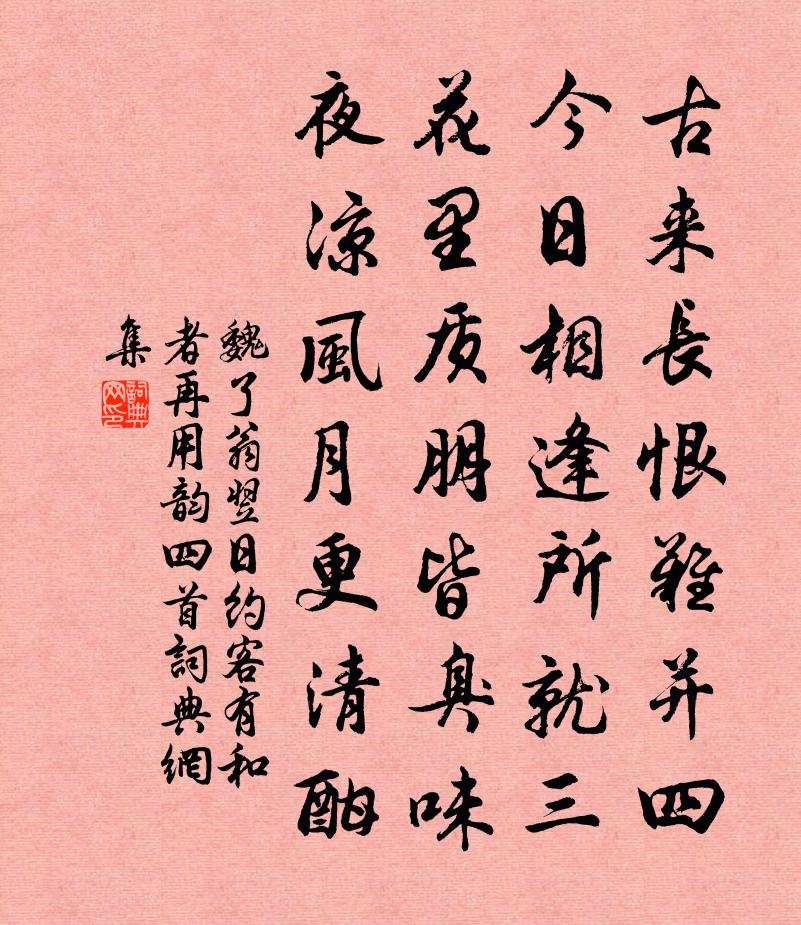 古来长恨難并四
今日相逢所就三
花里质朋皆臭味
夜凉風月更清酣
魏了翁翌日约客有和
者再用韵四首詞典網
集
詞典網印